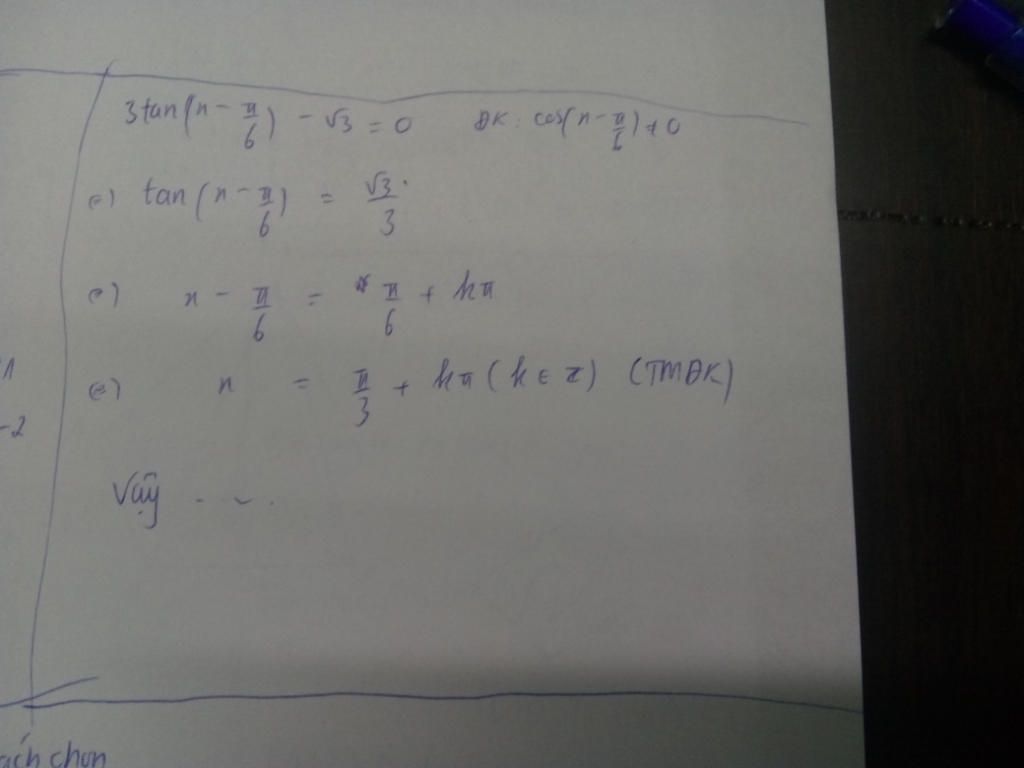 3tan(x - π/6) - √3 = 0 ĐK: cos(x - π/6) ≠ 0
⇔) tan(x - π/6) = √3/3
⇔) x - π/6 = π/6 + kπ
⇔) x = π/3 + kπ (k ∈ Z) (TMĐK)
-2
Vậy ...
ách chọn